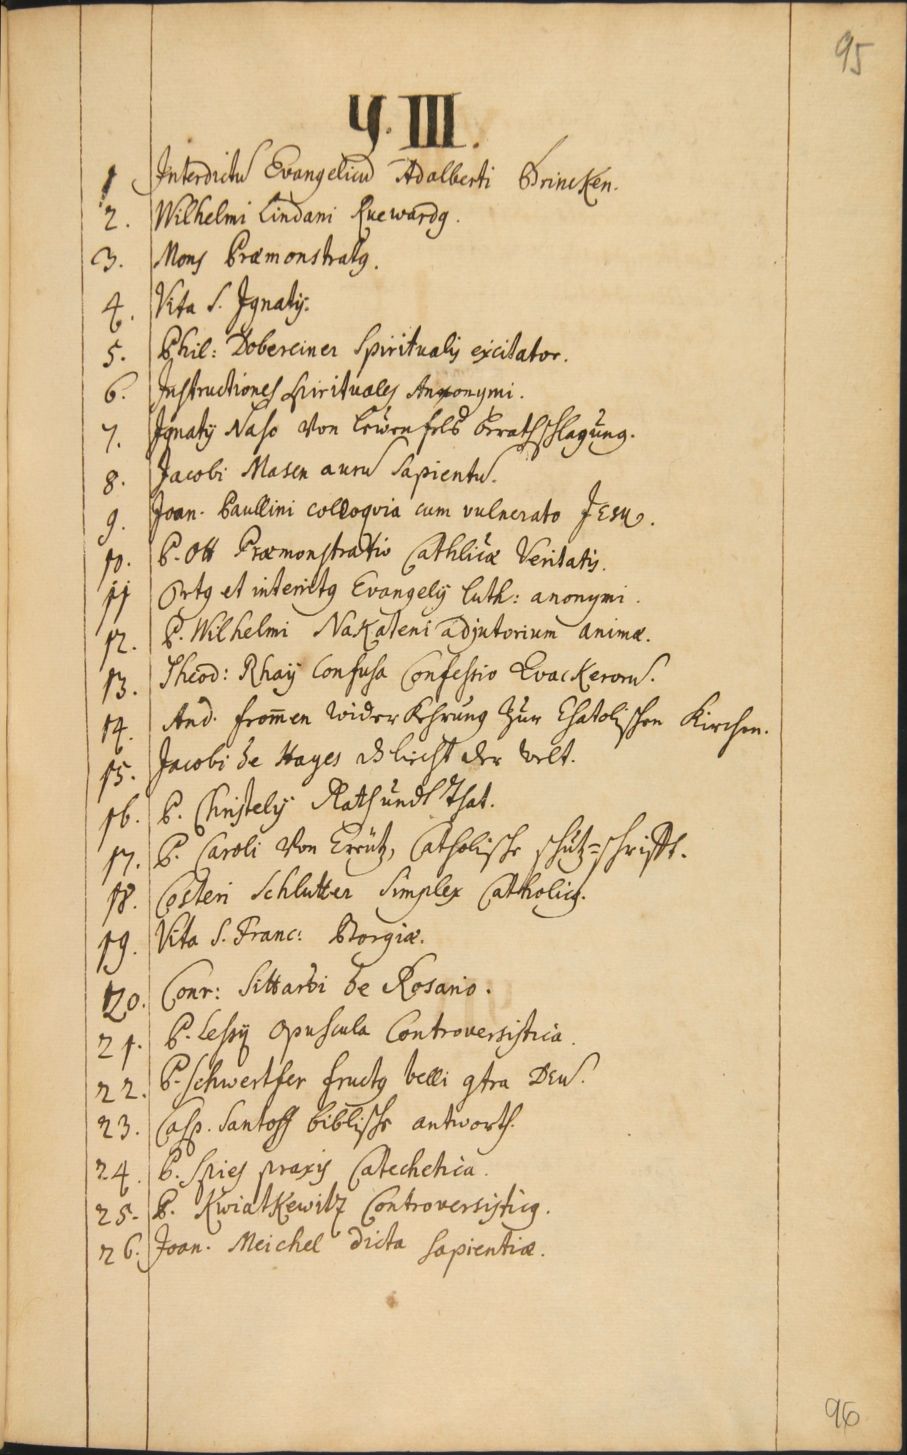 95
Y. III.
1 Interdictū Evangelicū Adalberti Brincken.
2. Wilhelmi Lindani Ruewardg.
3. Mons Præmonstratg.
4. Vita S. Ignatij.
5. Phil: Dobereiner Spiritualis excitator.
6. Instructiones spirituales Anonymi.
7. Ignatij Naso Von Lewenfels Berathschlagung.
8. Jacobi Masen aurū Sapientū.
9. Joan. Paullini colloqvia cum vulnerato JESU.
10. P. Ott Præmonstratio Cathlicæ Veritatis.
11 Ortg et interitg Evangelij Luth: anonymi.
12. P. Wilhelmi Nakateni adjutorium animæ.
13. Theod: Rhaij Confusa Confessio Evackerorū.
14. And. frommen widerkehrung zur Chatolischen Kirchen.
15. Jacobi de Hayes liecht der welt.
16. P. Christelij Rath undt That.
17. P. Caroli Von Creutz, Catholische schutz=schrifft.
18. Costeri Schlutter Simplex Catholicg.
19. Vita S. Franc: Borgiæ.
20. Conr: Sittardi de Rosario.
21. P. Lessij Opuscula Controversistica.
22. P. Schwertfer fructg belli 9tra DEU.
23. Casp. Santoff biblische antworth.
24. P. Spies praxis Catechetica.
25. P. Kwiatkewitz Controversisticg.
26. Joan. Meichel dicta sapientiæ.
96